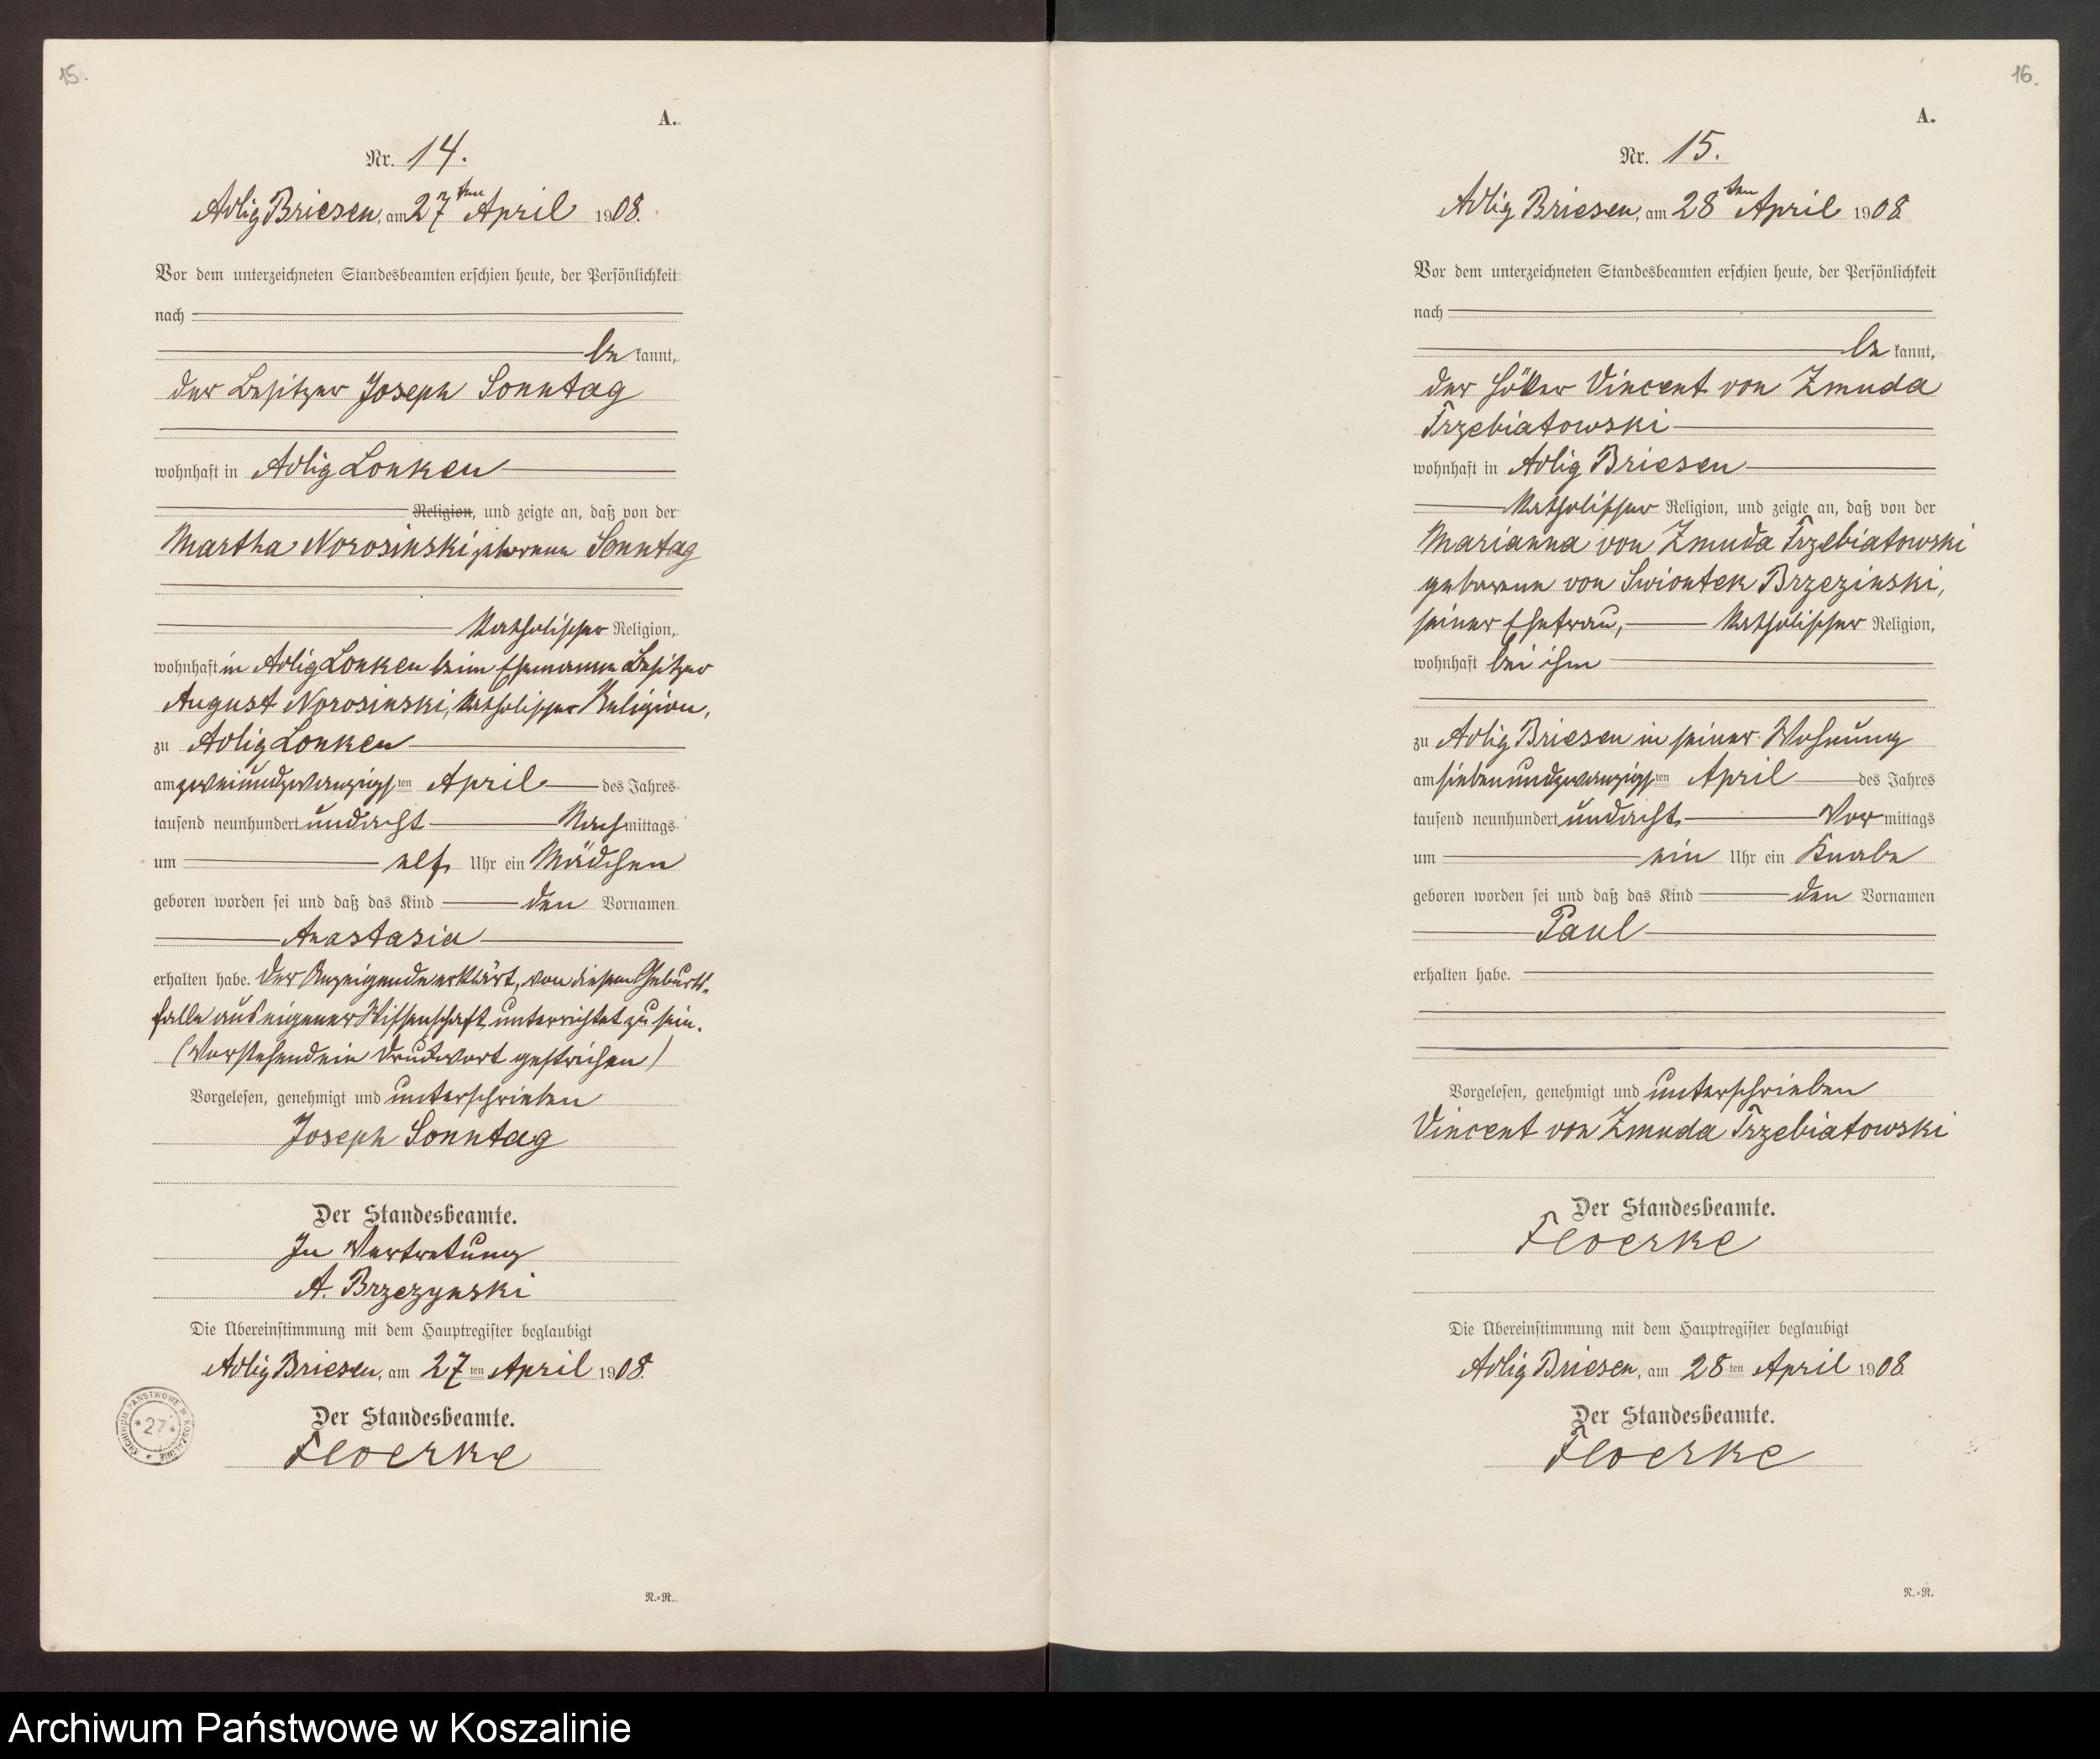 15.
A.
Nr. 14.
Adlig Briesen, am 27ten April 1908.
Vor dem unterzeichneten Standesbeamten erschien heute, der Persönlichkeit
nach
be kannt,
der Besitzer Joseph Sonntag
wohnhaft in Adlig Lonken
Religion, und zeigte an, daß von der
Martha Norosinski geborene Sonntag
Katholischer Religion,
wohnhaft in Adlig Lonken beim Ehemanne Besitzer
August Norosinski, katholischer Religion,
zu Adlig Lonken
am zweiundzwanzigsten April des Jahres
tausend neunhundert undacht Nachmittags
um elf Uhr ein Mädchen
geboren worden sei und daß das Kind den Vornamen
Anastasia
erhalten habe. Der Anzeigende erklärt, von diesem Geburts-
falle aus eigener Wissenschaft unterrichtet zu sein.
(Vorstehend ein Druckwort gestrichen)
Vorgelesen, genehmigt und unterschrieben
Joseph Sonntag
Der Standesbeamte.
In Vertretung
A. Brzezynski
Die Übereinstimmung mit dem Hauptregister beglaubigt
Adlig Briesen, am 27ten April 1908.
Der Standesbeamte.
Floerke
ARCHIWUM PAŃSTWOWE W KOSZALINIE
*27*
N.=R.
16.
A.
Nr. 15.
Adlig Briesen, am 28ten April 1908
Vor dem unterzeichneten Standesbeamten erschien heute, der Persönlichkeit
nach
be kannt,
der Höker Vincent von Zmuda
Trzebiatowski
wohnhaft in Adlig Briesen
Katholischer Religion, und zeigte an, daß von der
Marianna von Zmuda Trzebiatowski
geborene von Swiontek Brzezinski,
seiner Ehefrau, Katholischer Religion,
wohnhaft bei ihm
zu Adlig Briesen in seiner Wohnung
am siebenundzwanzigsten April des Jahres
tausend neunhundert undacht Vormittags
um ein Uhr ein Knabe
geboren worden sei und daß das Kind den Vornamen
Paul
erhalten habe.
Vorgelesen, genehmigt und unterschrieben
Vincent von Zmuda Trzebiatowski
Der Standesbeamte.
Floerke
Die Übereinstimmung mit dem Hauptregister beglaubigt
Adlig Briesen, am 28ten April 1908
Der Standesbeamte.
Floerke
N.=R.
Archiwum Państwowe w Koszalinie